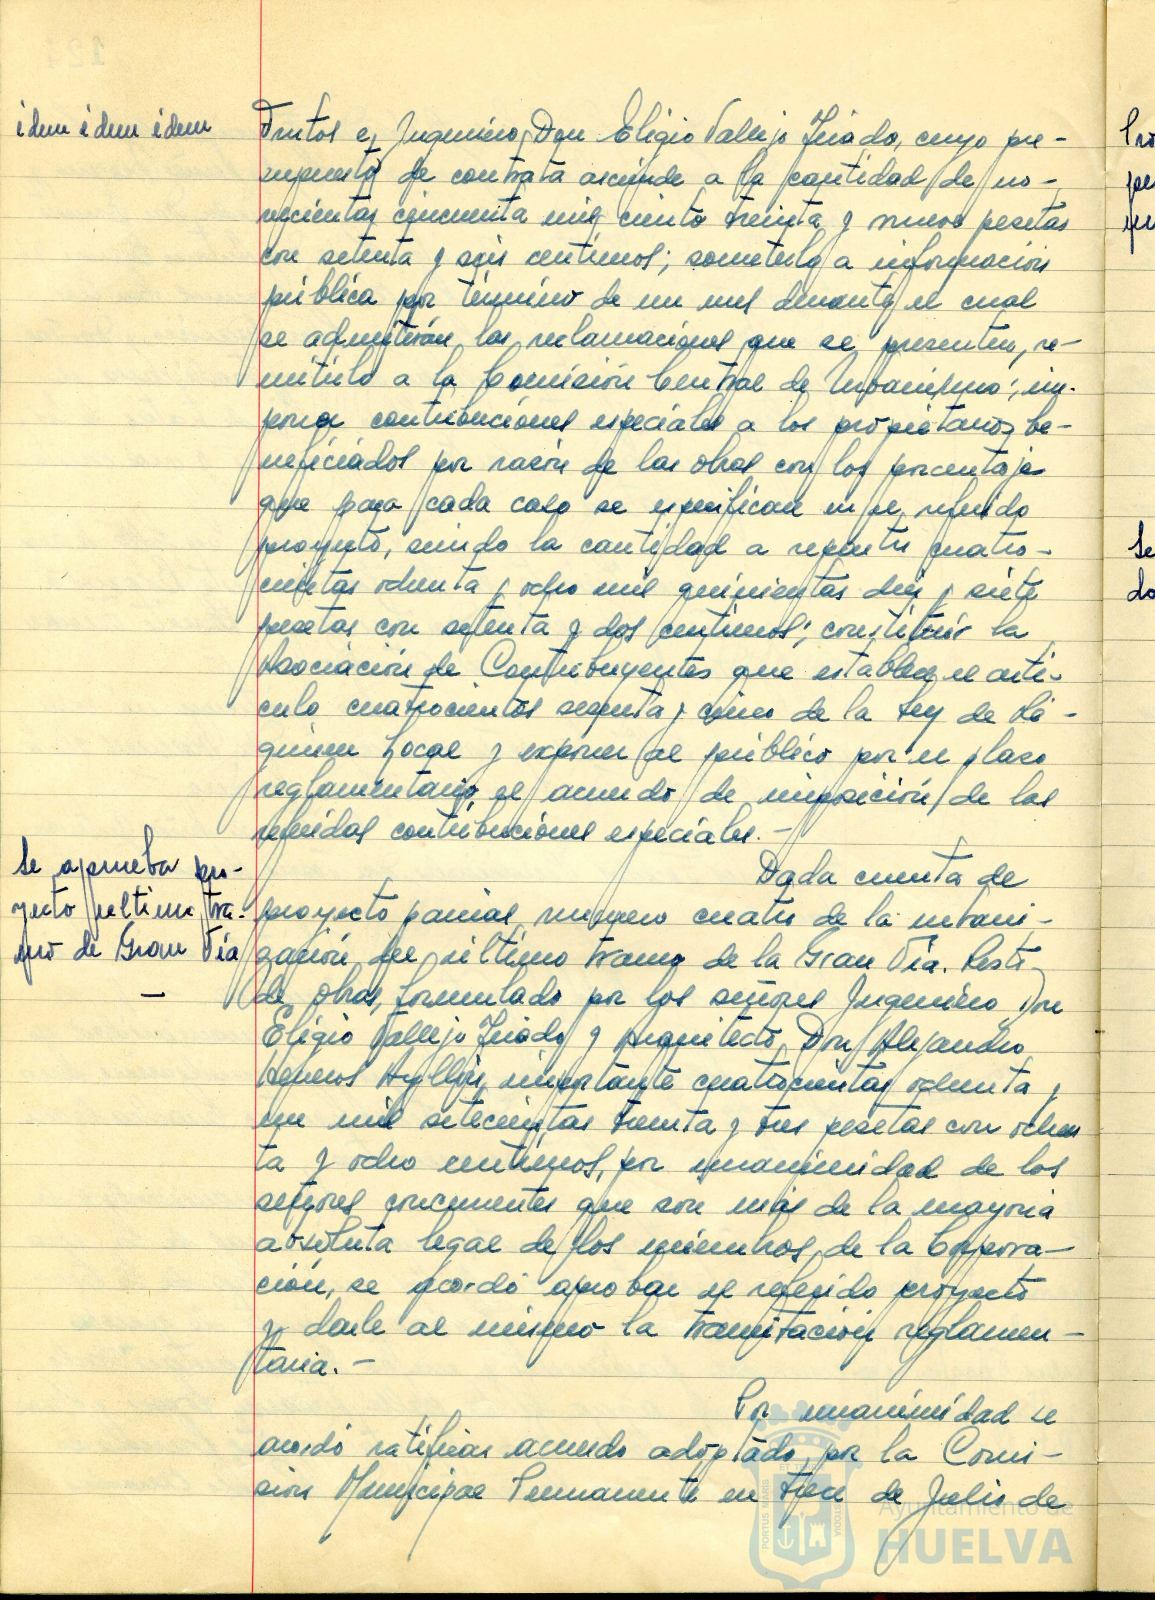 idem idem idem
Trutos el Ingeniero, Don Eligio Vallejo Triado, cuyo pre-
supuesto de contrata asciende a la cantidad de no-
vecientas cincuenta mil ciento treinta y nueve pesetas
con setenta y seis centimos; someterlo a información
pública por término de un mes durante el cual
se admitirán las reclamaciones que se presenten, re-
mitirlo a la Comisión Central de Urbanismo; im-
poner contribuciones especiales a los propietarios be-
neficiados por razón de las obras con los porcentajes
que para cada caso se especifican en el referido
proyecto, siendo la cantidad a repartir cuatro-
cientas ochenta y ocho mil quinientas diez y siete
pesetas con setenta y dos centimos; constituir la
Asociación de Contribuyentes que establece el artí-
culo cuatrocientos sesenta y cinco de la Ley de Ré-
gimen Local y exponer al público por el plazo
reglamentario el acuerdo de imposición de las
referidas contribuciones especiales.-
Se aprueba pro-
yecto último tra-
mo de Gran Vía
-
Dada cuenta de
proyecto parcial número cuatro de la urbani-
zación del último tramo de la Gran Vía. Resto
de obras, formulado por los señores Ingeniero Don
Eligio Vallejo Triado y Arquitecto Don Alejandro
Herreros Ayllón, importante cuatrocientas ochenta y
un mil setecientas treinta y tres pesetas con ochen
ta y ocho centimos, por unanimidad de los
señores concurrentes que son más de la mayoria
absoluta legal de los miembros de la Corpora-
ción, se acordó aprobar el referido proyecto
y darle al mismo la tramitación reglamen-
taria.-
Por unanimidad se
acordó ratificar acuerdo adoptado por la Comi-
sión Municipal Permanente en trece de Julio de
Se
do
PORTUS MARIS
ET TERRE
CUSTODIA
Ayuntamiento de
HUELVA